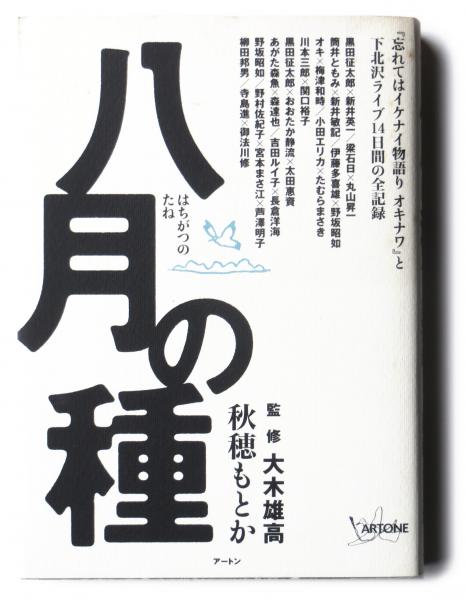 『忘れてはイケナイ物語り オキナワ』と
下北沢ライブ14日間の全記録
黒田征太郎×新井英一/梁石日×丸山昇一
筒井ともみ×新井敏記/伊藤多喜雄×野坂昭如
オキ×梅津和時/小田エリカ×たむらまさき
川本三郎×関口裕子
黒田征太郎×おおたか静流×太田恵資
あがた森魚×森達也/吉田ルイ子×長倉洋海
野坂昭如/野村佐紀子×宮本まさ江×芦澤明子
柳田邦男/寺島進×御法川修
八月の種
はちがつの
たね
監修 大木雄高
秋穂もとか
ARTONE
アートン